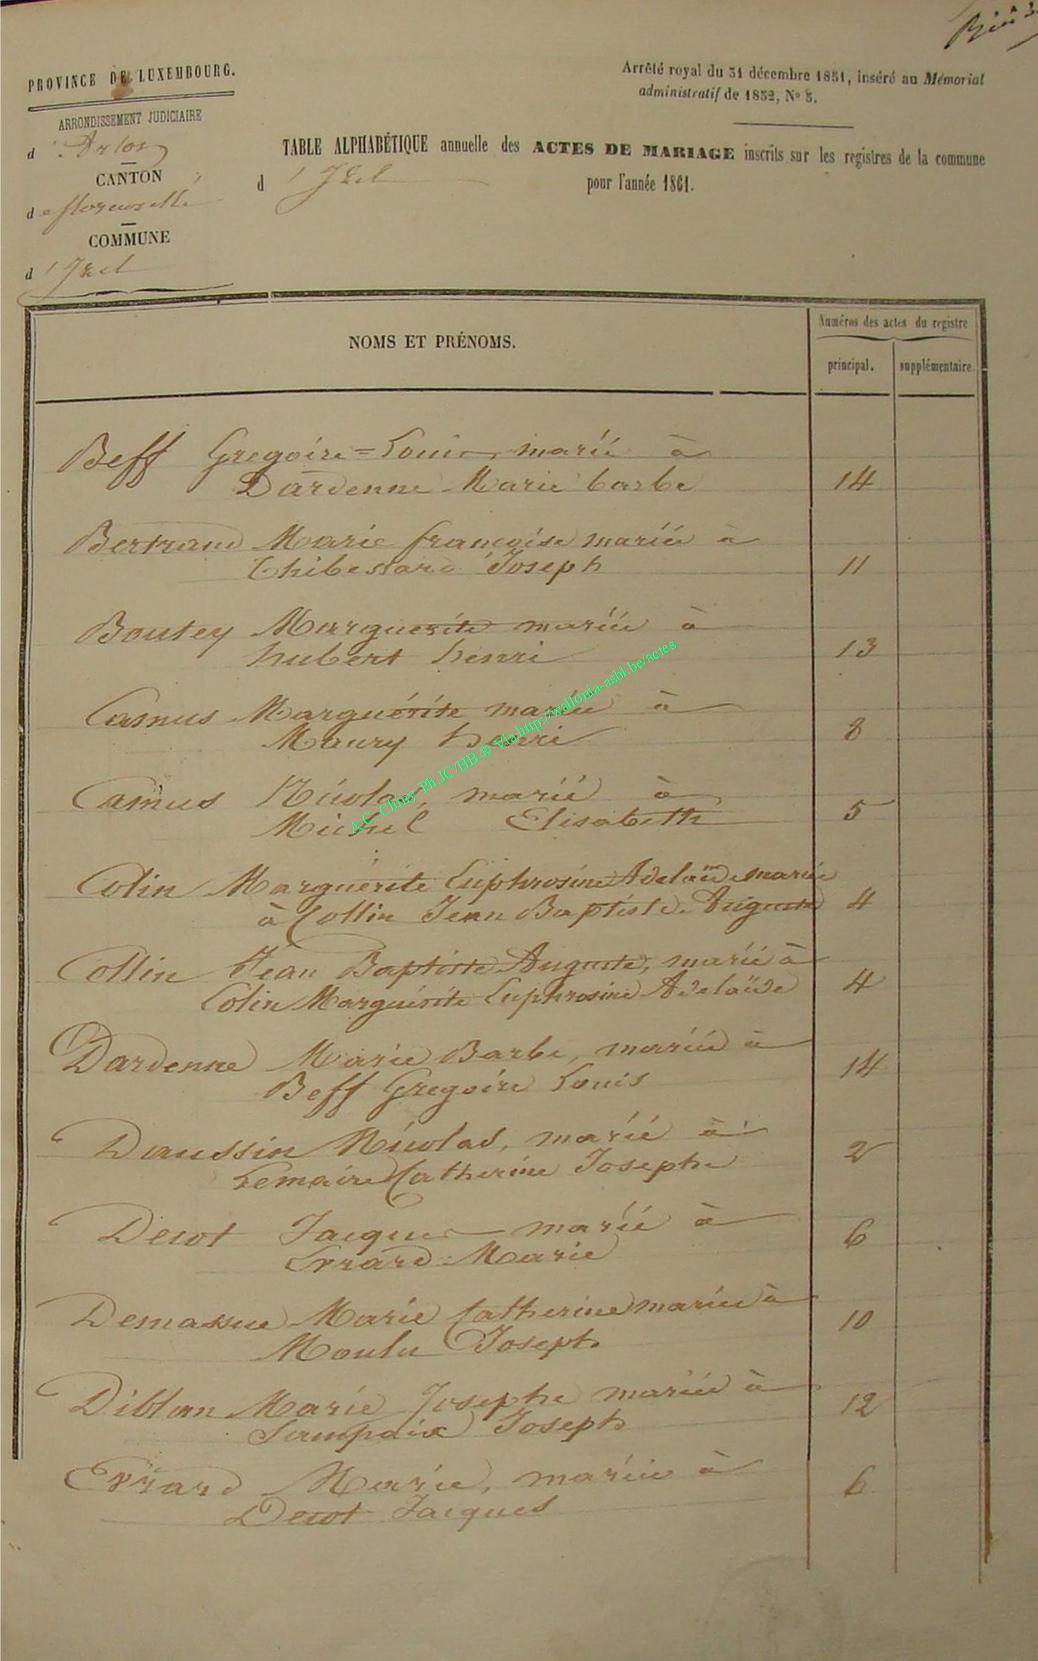 PROVINCE DE LUXEMBOURG.
ARRONDISSEMENT JUDICIAIRE
d'Arlon
CANTON
de florenville
COMMUNE
d'Izel
Arrêté royal du 31 décembre 1851, inséré au Mémorial
administratif de 1852, Nº 3.
TABLE ALPHABÉTIQUE annuelle des ACTES DE MARIAGE inscrits sur les registres de la commune
d'Izel pour l'année 1861.
NOMS ET PRÉNOMS.
Numéros des actes du registre
principal. supplémentaire
Beff Gregoire=Louis marié à
Dardenne Marie barbe 14
Bertrand Marie françoise mariée à
Thibessard Joseph 11
Boutey Marguerite mariée à
hubert henri 13
Camus Marguérite mariée à
Maury henri 8
Camus Nicolas, marié à
Michel Elisabeth 5
Colin Marguérite Euphrosine Adelaïde mariée
à Collin Jean Baptiste Auguste 4
Collin Jean Baptiste Auguste, marié à
Colin Marguérite Euphrosine Adelaïde 4
Dardenne Marie Barbe, mariée à
Beff Gregoire Louis 14
Daussin Nicolas, marié à
Lemaire Catherine Josephe 2
Decot Jacques marié à
Evrard Marie 6
Demasue Marie Catherine mariée à
Moulu Joseph 10
Diblan Marie Josephe mariée à
Sampaix Joseph 12
Evrard Marie, mariée à
Decot Jacques 6
A.C. Chiny Ph.JC/HB.® Via http://wallonia-asbl.be/actes